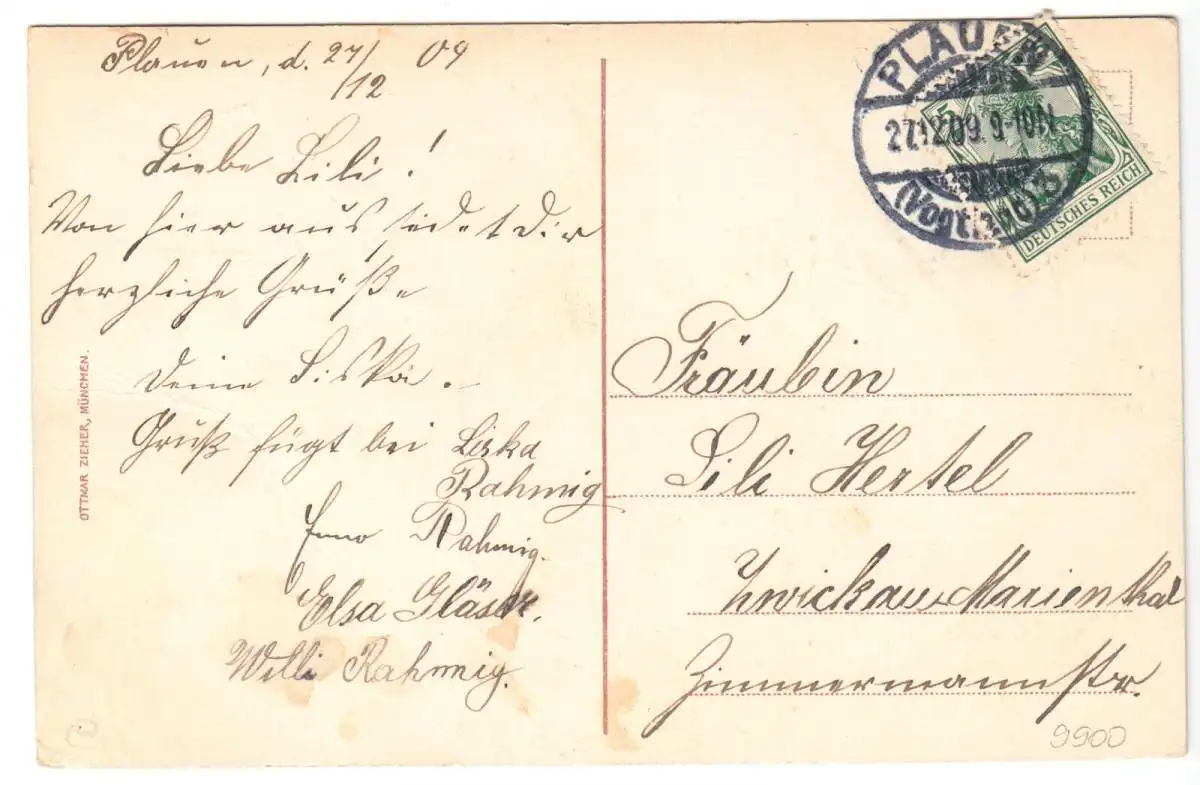 Plauen, d. 27/12 09
Liebe Lili!
Von hier aus sendet Dir
herzliche Grüße
Deine Liska.
Gruß fügt bei Liska
Rahmig
Rahmig.
Elsa Gläser.
Willi Rahmig.
OTTMAR ZIEHER, MÜNCHEN.
PLAUEN
27.12.09. 9-10N
(Vogtland)
5
DEUTSCHES REICH
Fräulein
Lili Hertel
Zwickau Marienthal
Zimmermannstr.
9900